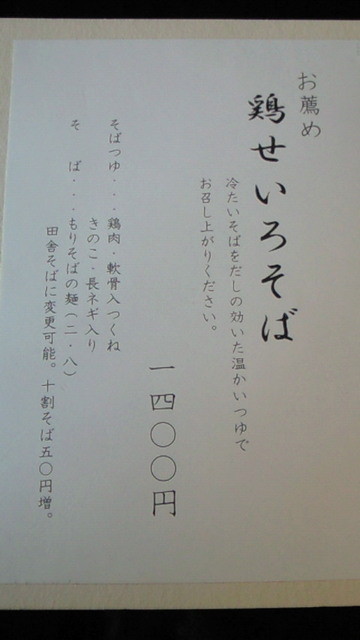 お薦め
鶏せいろそば
冷たいそばをだしの効いた温かいつゆで
お召し上がりください。
一四〇〇円
そばつゆ・・・鶏肉・軟骨入つくね
きのこ・長ネギ入り
そ　ば・・・もりそばの麺(二・八)
田舎そばに変更可能。十割そば五〇円増。